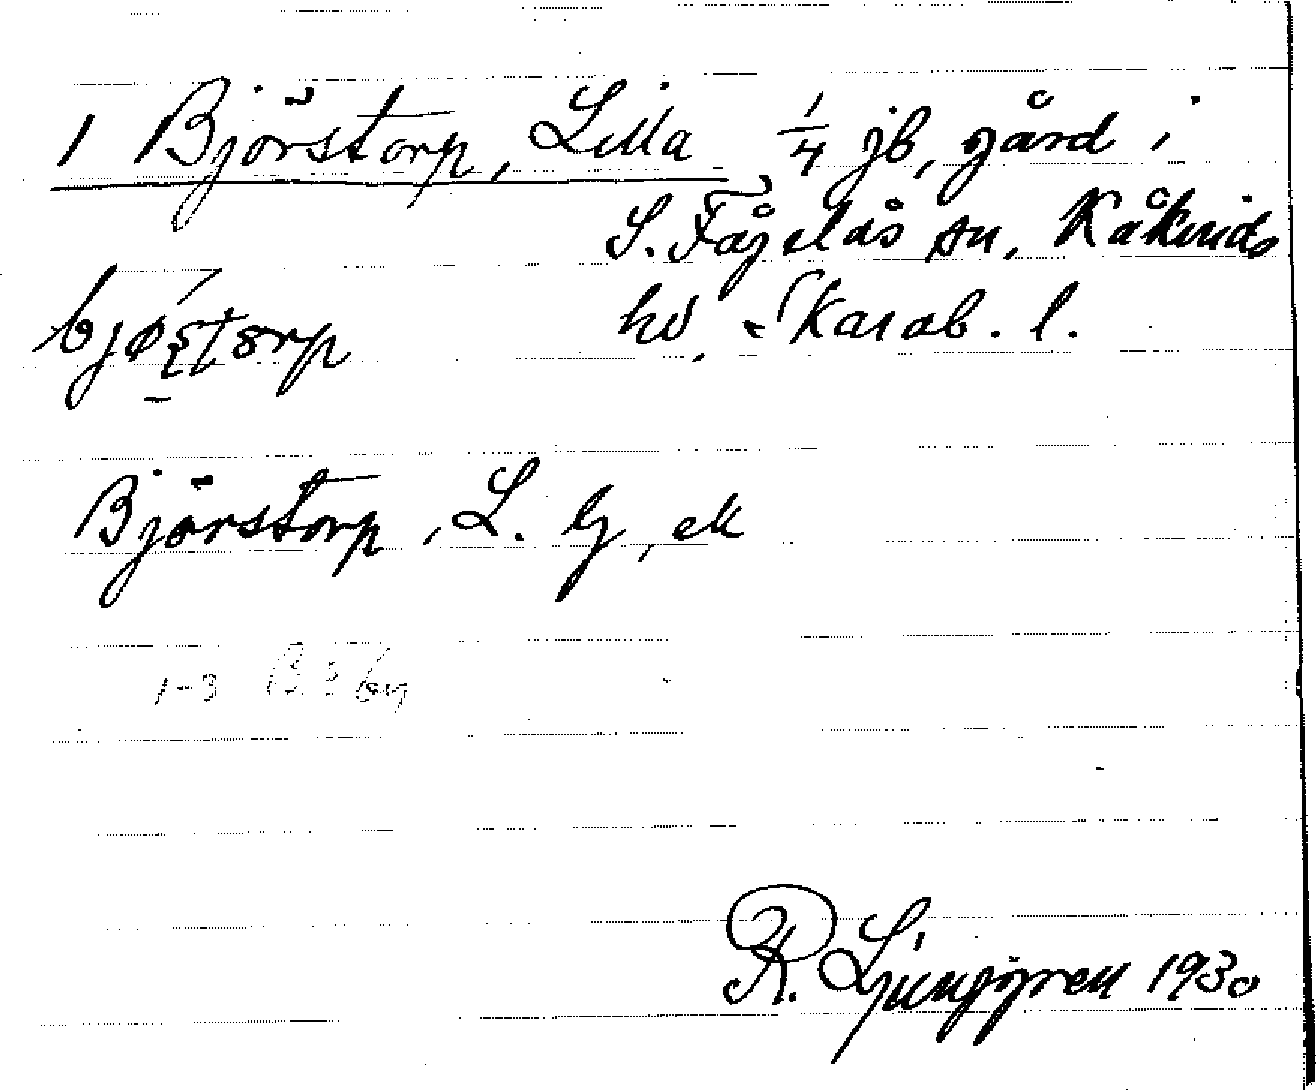 1 Björstorp, Lilla 1/4 jb, gård i
S. Fågelås sn, Kåkinds
hd, Skarab. l.
bjøstorp
Björstorp, L. bj, ek
1-3
R. Ljunggren 1930